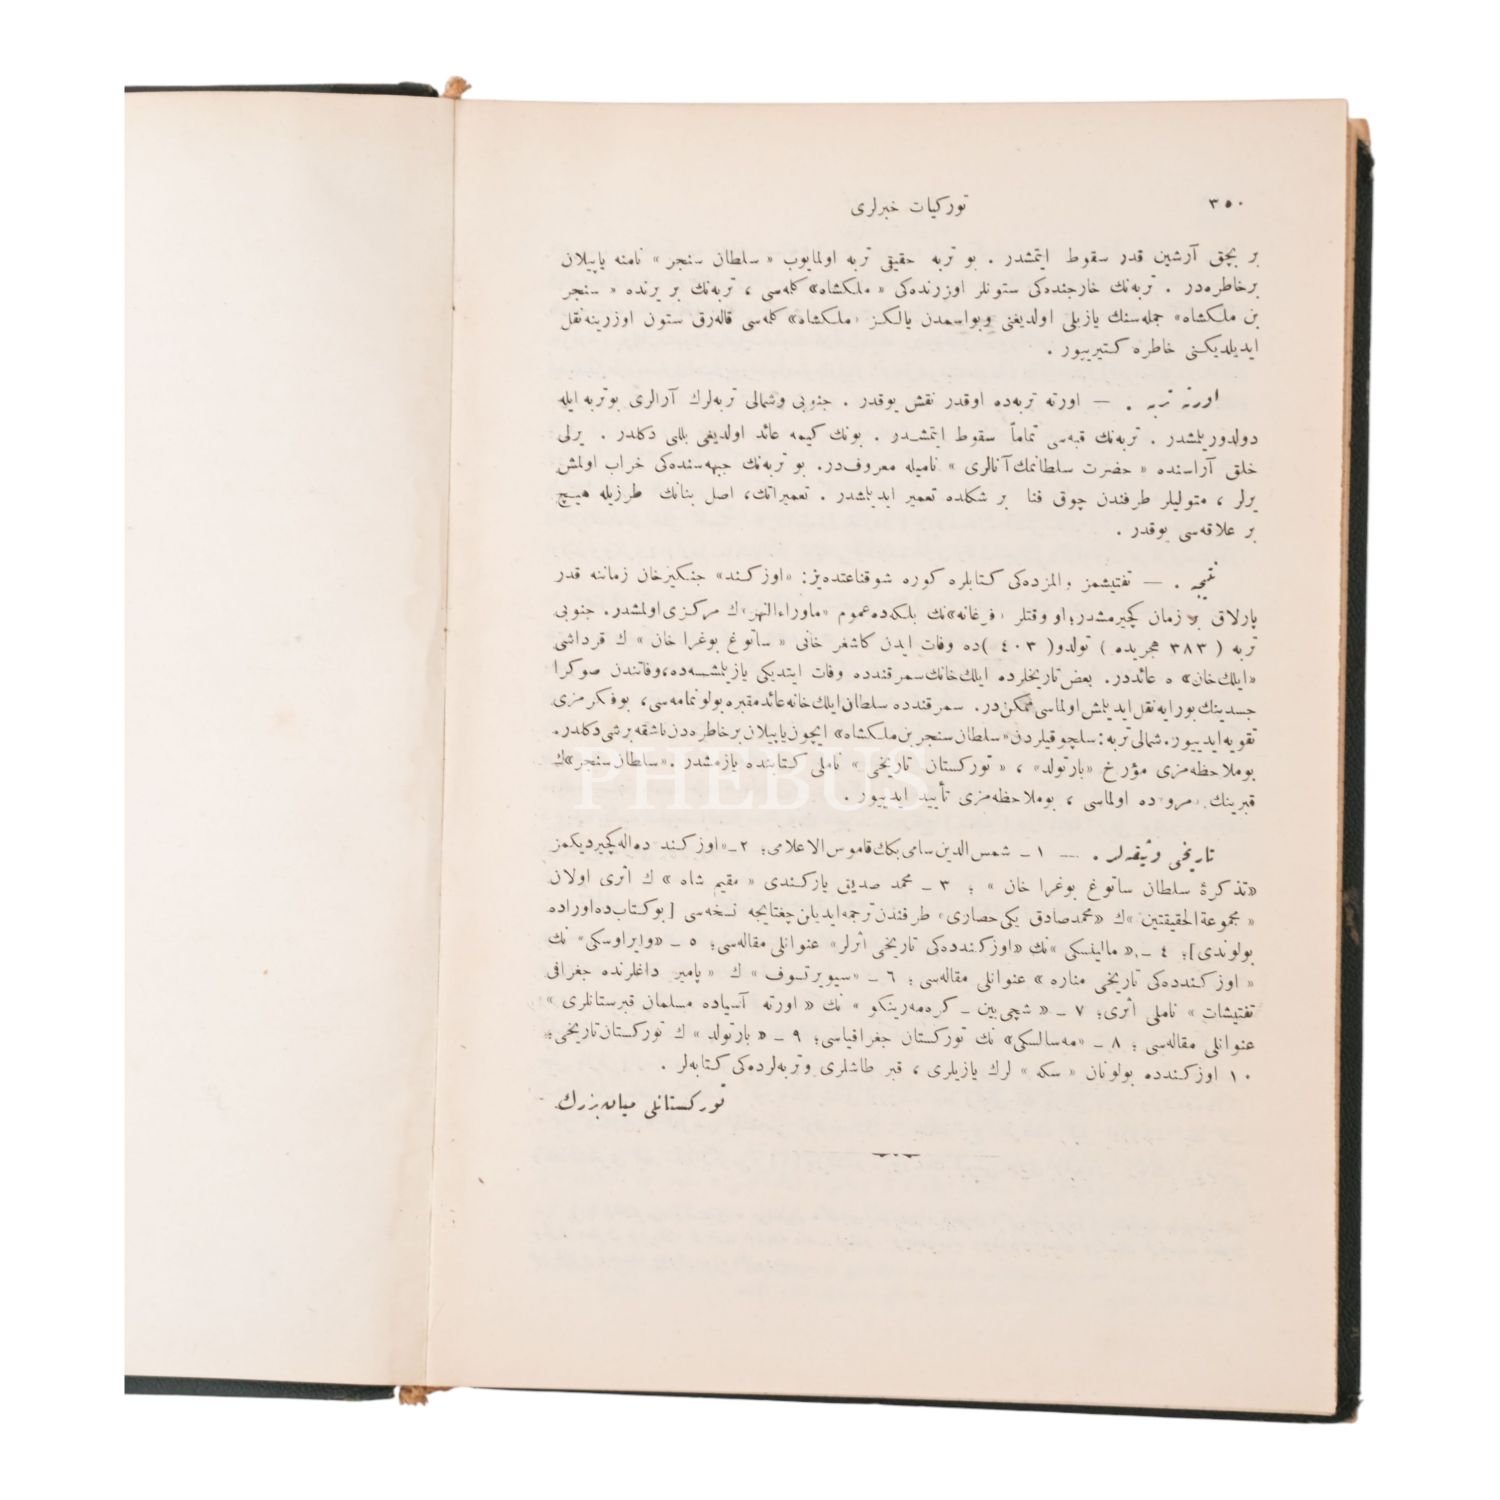 ٣٥٠
توركيات خبرلری
بر بچق آرشين قدر سقوط ايتمشدر . بو تربه حقيقی تربه اولمايوب « سلطان سنجر » نامنه ياپيلان
برخاطره‌در . تربه‌نك خارجنده‌كی ستونلر اوزرنده‌كی « ملكشاه» كلمه‌سی ، تربه‌نك بر يرنده « سنجر
بن ملكشاه» جمله‌سنك يازيلی اولديغنی وبواسمدن يالكز «ملكشاه» كلمه‌سی قاله‌رق ستون اوزرينه نقل
ايديلديكنی خاطره كتيرييور .
اورته تربه . — اورته تربه‌ده اوقدر نقش يوقدر . جنوبی وشمالی تربه‌لرك آرالری بوتربه ايله
دولدوريلمشدر . تربه‌نك قبه‌سی تماماً سقوط ايتمشدر . بونك كيمه عائد اولديغی بللی دكلدر . يرلی
خلق آراسنده « حضرت سلطانمك آنالری » ناميله معروف‌در. بو تربه‌نك جبهه‌سنده‌كی خراب اولمش
يرلر ، متوليلر طرفندن چوق فنا بر شكلده تعمير ايديلمشدر . تعميراتك، اصل بنانك طرزيله هيچ
بر علاقه‌سی يوقدر .
نتيجه . — تفتيشمز والمزده‌كی كتابلره كوره شوقناعتده‌يز: «اوزكند» جنكيزخان زماننه قدر
پارلاق بر زمان كچيرمشدر؛ او وقتلر «فرغانه»نك بلكه‌ده عموم «ماوراءالنهر»ك مركزی اولمشدر. جنوبی
تربه ( ٣٨٣ هجريده ) تولدو( ٤٠٣ )ده وفات ايدن كاشغر خانی « ساتوغ بوغرا خان » ك قرداشی
«ايلك خان» ه عائددر. بعض تاريخلرده ايلك خانك سمرقندده وفات ايتديكی يازيلمشسه‌ده، وفاتندن صوكرا
جسدينك بورايه نقل ايديلمش اولماسی ممكن‌در. سمرقندده سلطان ايلك خانه عائد مقبره بولونمامه‌سی، بوفكرمزی
تقويه ايدييور. شمالی تربه: سلچوقيلردن «سلطان سنجر بن ملكشاه» ايچون ياپيلان برخاطره‌دن باشقه برشی دكلدر.
بوملاحظه‌مزی مؤرخ «بارتولد» ، « توركستان تاريخی » ناملی كتابنده يازمشدر . «سلطان سنجر»ك
قبرينك «مرو»ده اولماسی ، بوملاحظه‌مزی تأييد ايدييور .
تاريخی وثيقه‌لر . — ١ ـ شمس الدين سامی بكك قاموس الاعلامی؛ ٢ ـ اوزكند ده اله كچيرديكمز
«تذكرۀ سلطان ساتوغ بوغرا خان » ؛ ٣ ـ محمد صديق ياركندی « مقيم شاه » ك اثری اولان
« مجموعة الحقيقتين »ك «محمدصادق يكی حصاری» طرفندن ترجمه ايديلن چغتايجه نسخه‌سی [بوكتاب ده اوراده
بولوندی]؛ ٤ ـ « ماليفسكی »نك «اوزكندده‌كی تاريخی اثرلر» عنوانلی مقاله‌سی؛ ٥ ـ «وايراوسكی» نك
« اوزكندده‌كی تاريخی مناره » عنوانلی مقاله‌سی ؛ ٦ ـ «سيويرتسوف » ك « پامير داغلرنده جغرافی
تفتيشات » ناملی اثری؛ ٧ ـ « شچی بين ـ كره‌مه‌رينكو » نك « اورته آسياده مسلمان قبرستانلری »
عنوانلی مقاله‌سی ؛ ٨ ـ «مه‌سالسكی» نك توركستان جغرافياسی؛ ٩ ـ « بارتولد » ك توركستان تاريخی؛
١٠ اوزكندده بولونان « سكه » لرك يازيلری ، قبر طاشلری وتربه‌لرده‌كی كتابه‌لر .
توركستانلی ميان بزرك
PHEBUS